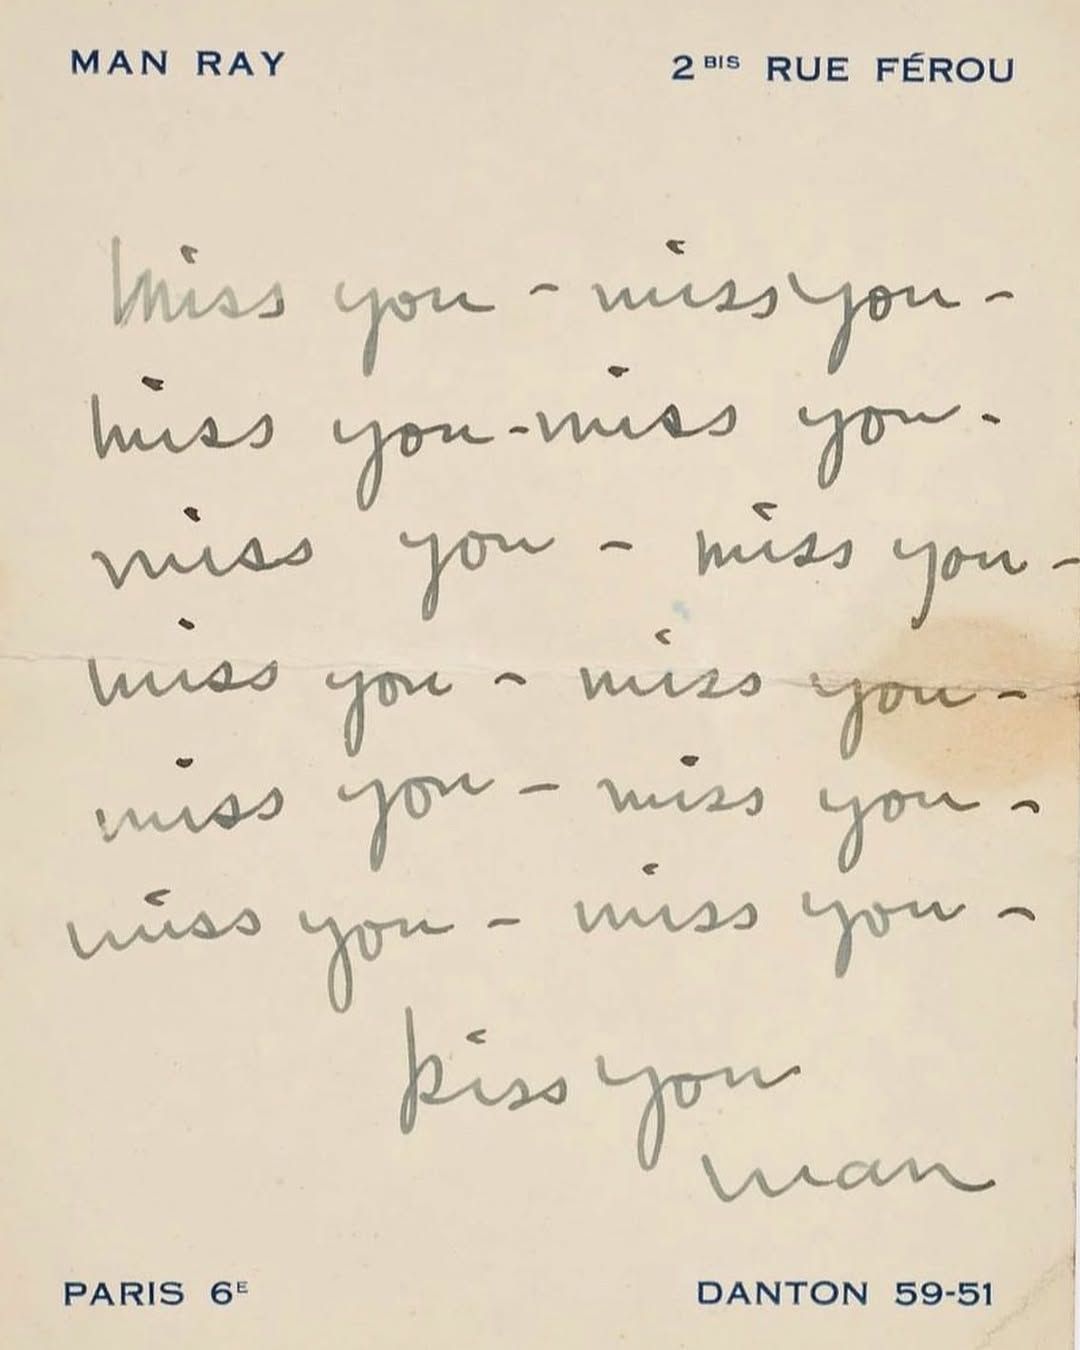 MAN RAY 2 BIS RUE FÉROU
Miss you - miss you -
miss you - miss you -
miss you - miss you -
miss you - miss you -
miss you - miss you -
miss you - miss you -
kiss you
man
PARIS 6E DANTON 59-51